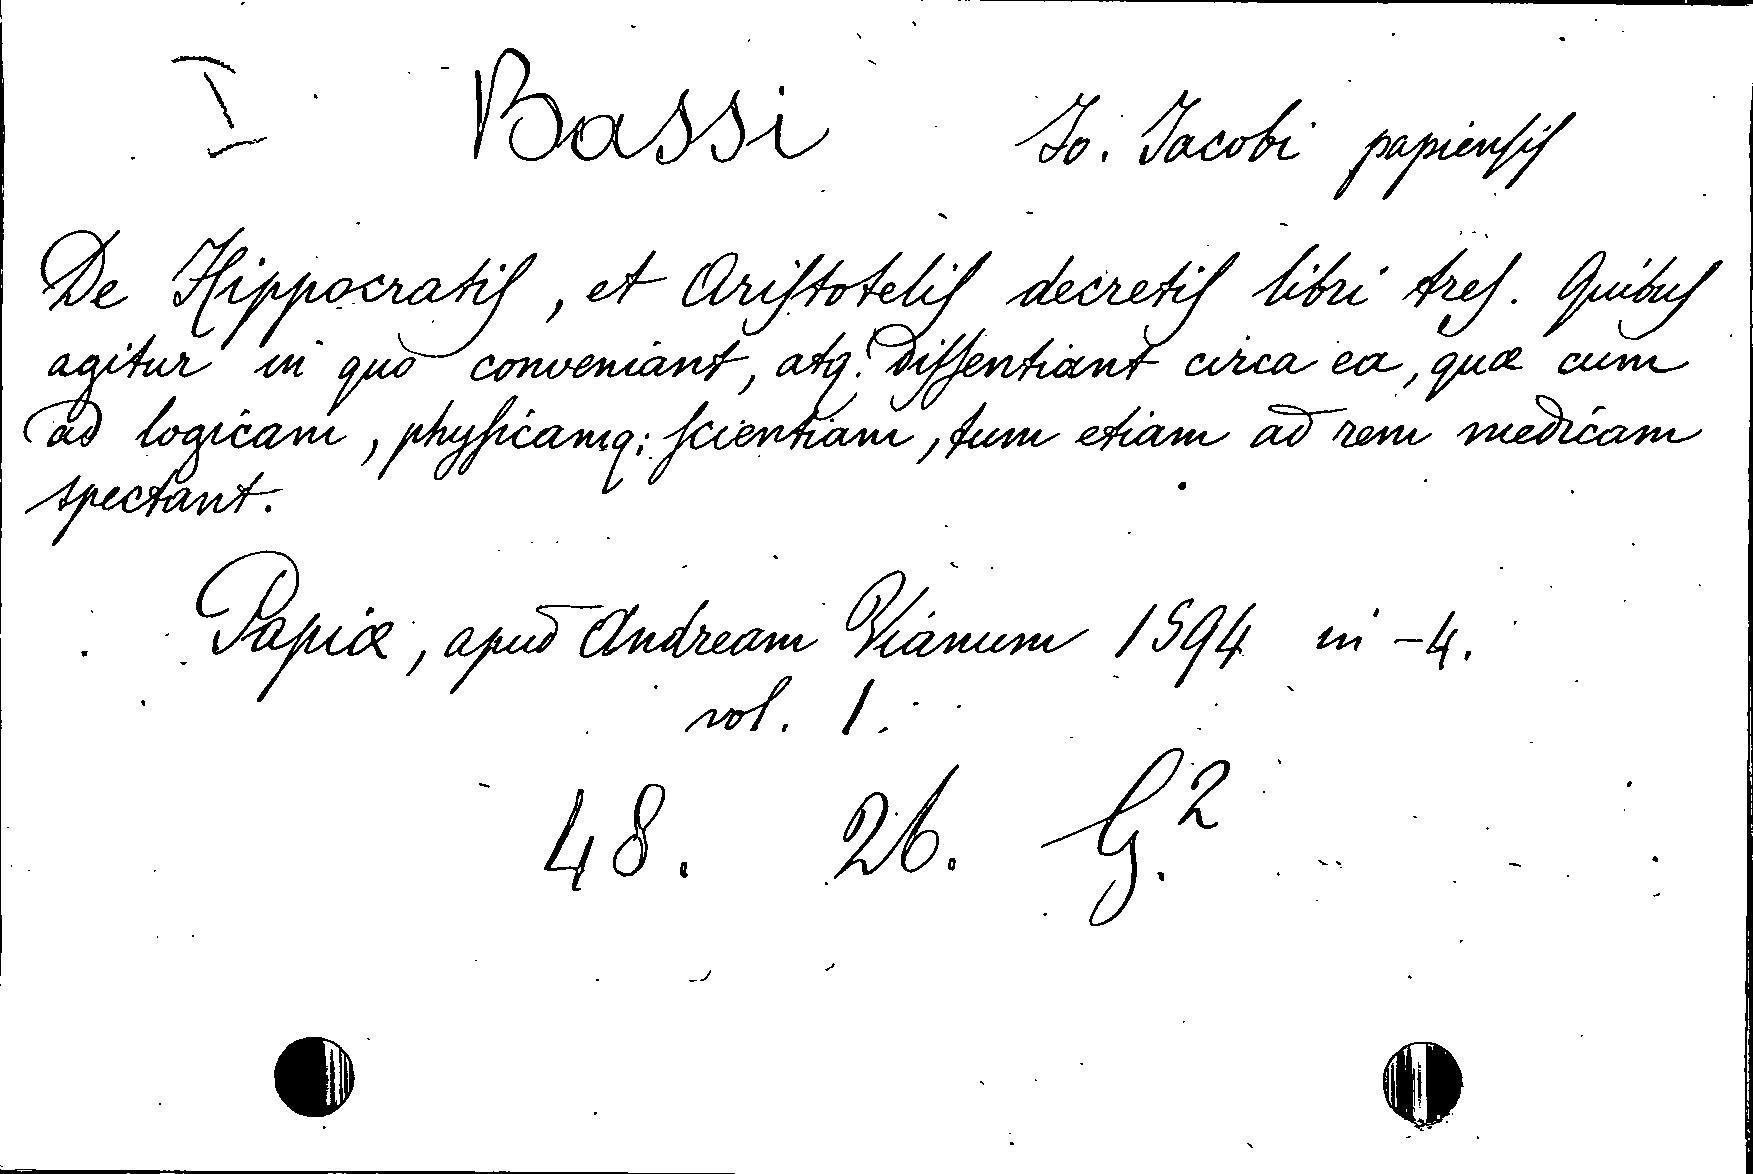 I Bassi Jo. Jacobi papiensis
De Hippocratis, et Aristotelis decretis libri tres. Quibus
agitur in quo conveniant, atq: dissentiant circa ea, quæ cum
ad logicam, physicamq: scientiam, tum etiam ad rem medicam
spectant.
Papiæ, apud Andream Vianum 1594 in -4.
vol. 1.
48. 26. G.2